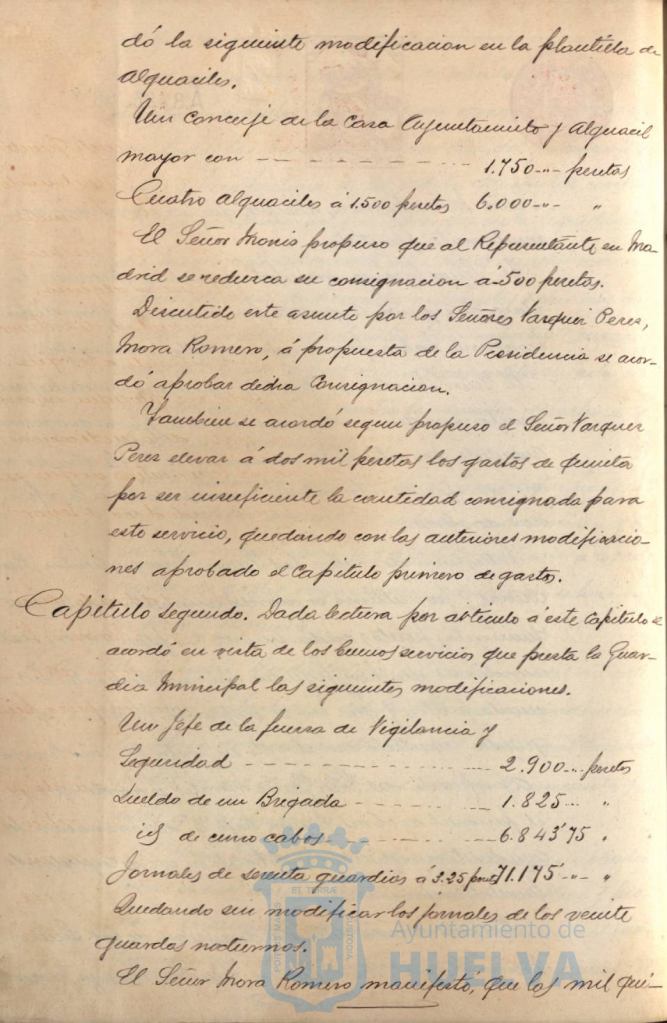 dó la siguiente modificacion en la plantilla de
alguaciles.
Un conserje de la Casa Ayuntamiento y Alguacil
mayor con - - - - - - - - 1.750 -"- pesetas
Cuatro alguaciles á 1.500 pesetas 6.000 -"- "
El Señor Monis propuso que al Representante en Ma-
drid se reduzca su consignacion á 500 pesetas.
Discutido este asunto por los Señores Vazquez Perez,
Mora Romero, á propuesta de la Presidencia se acor-
dó aprobar dicha consignacion.
Tambien se acordó segun propuso el Señor Vazquez
Perez elevar á dos mil pesetas los gastos de quinta
por ser insuficiente la cantidad consignada para
este servicio, quedando con las anteriores modificacio-
nes aprobado el Capitulo primero de gastos.
Capitulo segundo. Dada lectura por articulo á este Capitulo se
acordó en vista de los buenos servicios que presta la Guar-
dia Municipal las siguientes modificaciones.
Un Jefe de la fuerza de Vigilancia y
Seguridad - - - - - - - - 2.900 -"- pesetas
Sueldo de un Brigada - - - - - 1.825 -"- "
id de cinco cabos - - - - - - 6.843'75 "
Jornales de sesenta guardias á 3.25 pesetas 71.175 -"- "
Quedando sin modificar los jornales de los veinte
guardas nocturnos.
El Señor Mora Romero manifestó, que las mil qui-
EL TERRÆ
PORTUS MARIS
CUSTODIA
Ayuntamiento de
HUELVA